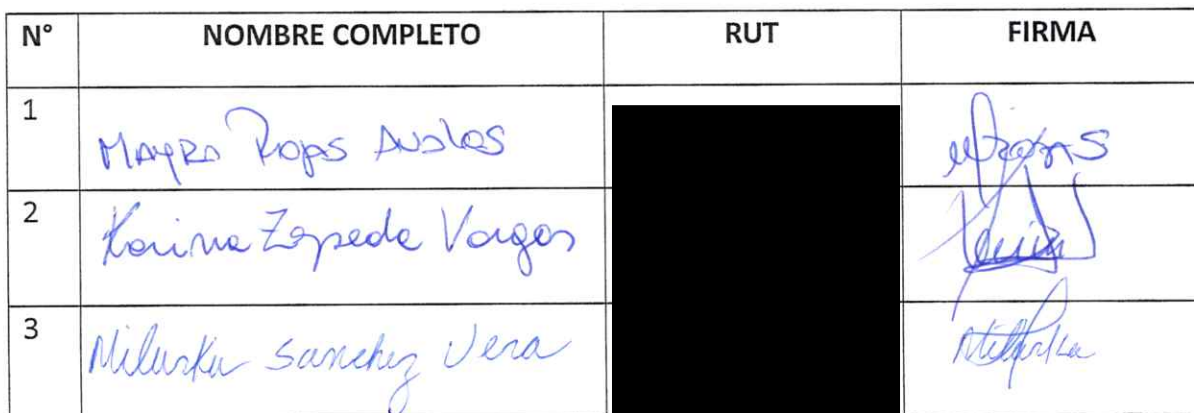 N° NOMBRE COMPLETO RUT FIRMA
1 Mayra Rojas Avalos
2 Karina Zepeda Vargas
3 Milurka Sanchez Vera Milurka